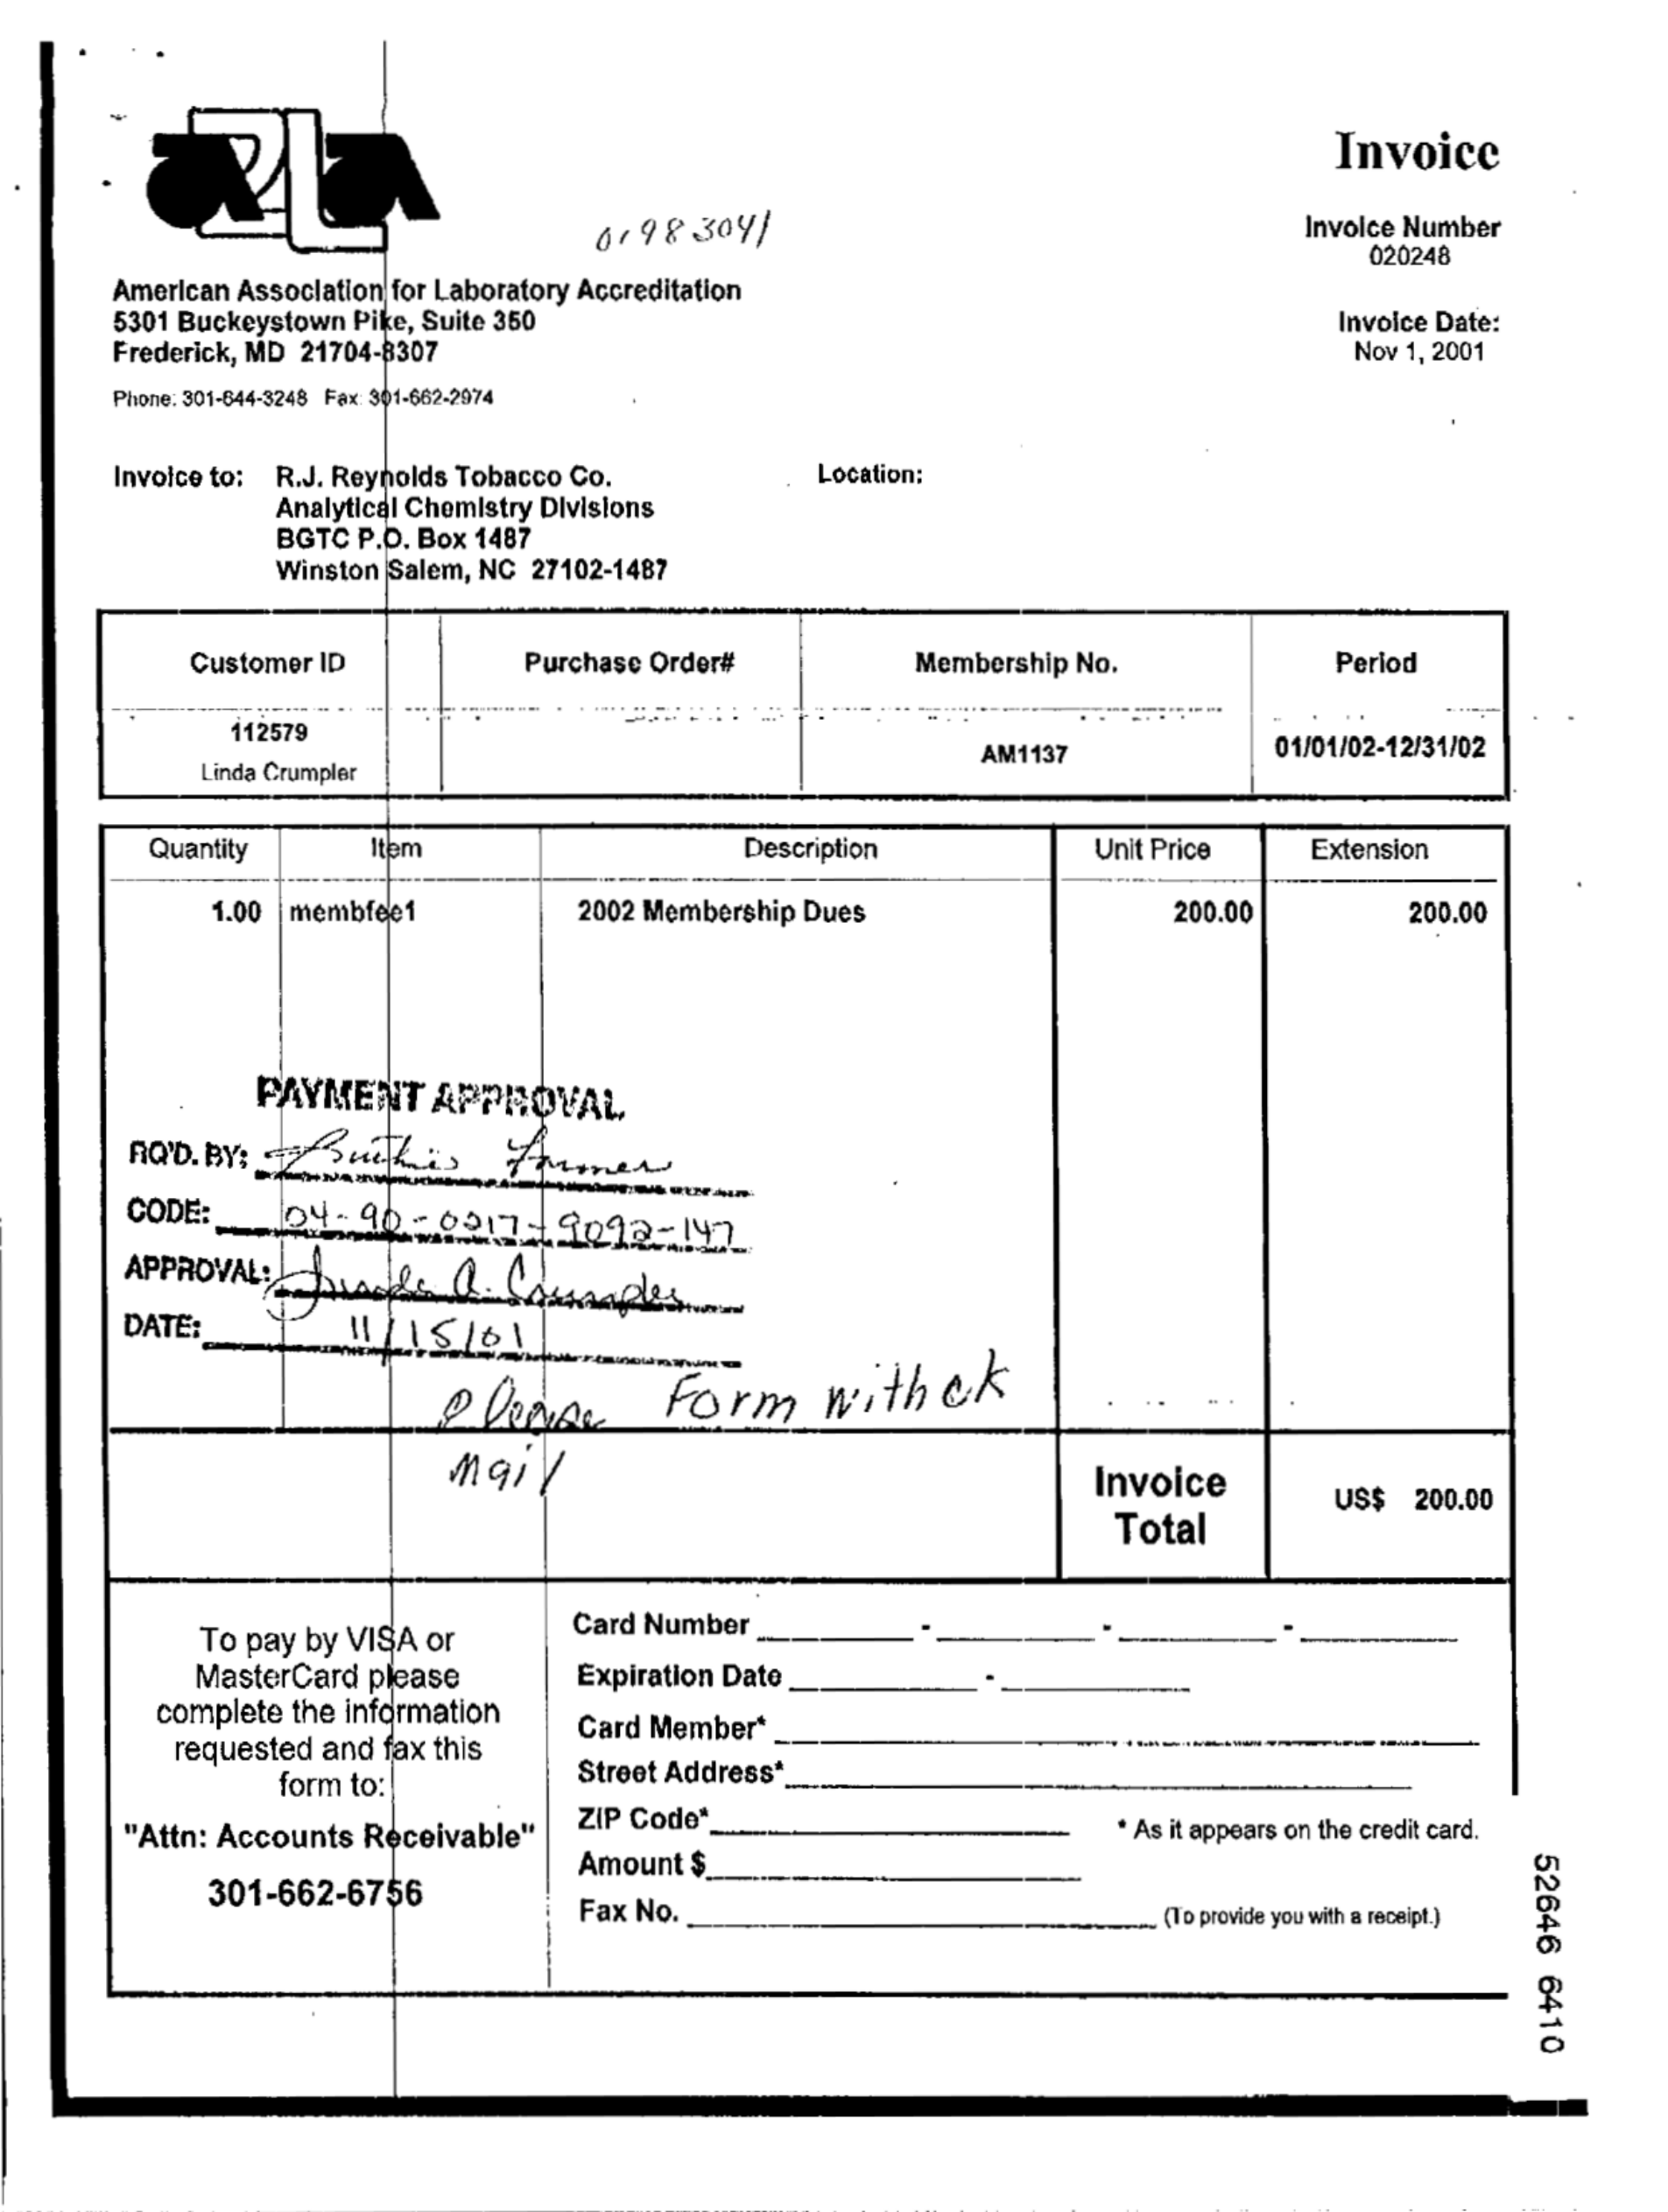 a2la
Invoice
01983041
Invoice Number
020248
American Association for Laboratory Accreditation
5301 Buckeystown Pike, Suite 350
Frederick, MD 21704-8307
Invoice Date:
Nov 1, 2001
Phone: 301-644-3248 Fax: 301-662-2974
Invoice to: R.J. Reynolds Tobacco Co.
Analytical Chemistry Divisions
BGTC P.O. Box 1487
Winston Salem, NC 27102-1487
Location:
Customer ID Purchase Order# Membership No. Period
112579
Linda Crumpler
AM1137
01/01/02-12/31/02
Quantity Item Description Unit Price Extension
1.00 membfee1 2002 Membership Dues 200.00 200.00
PAYMENT APPROVAL
RQ'D. BY: Farmer
CODE: 04-90-0217-9092-147
APPROVAL: Linda A. Crumpler
DATE: 11/15/01
Please Form with ck
mail
Invoice
Total
US$ 200.00
To pay by VISA or
MasterCard please
complete the information
requested and fax this
form to:
"Attn: Accounts Receivable"
301-662-6756
Card Number - - -
Expiration Date -
Card Member*
Street Address*
ZIP Code* * As it appears on the credit card.
Amount $
Fax No. (To provide you with a receipt.)
52646 6410